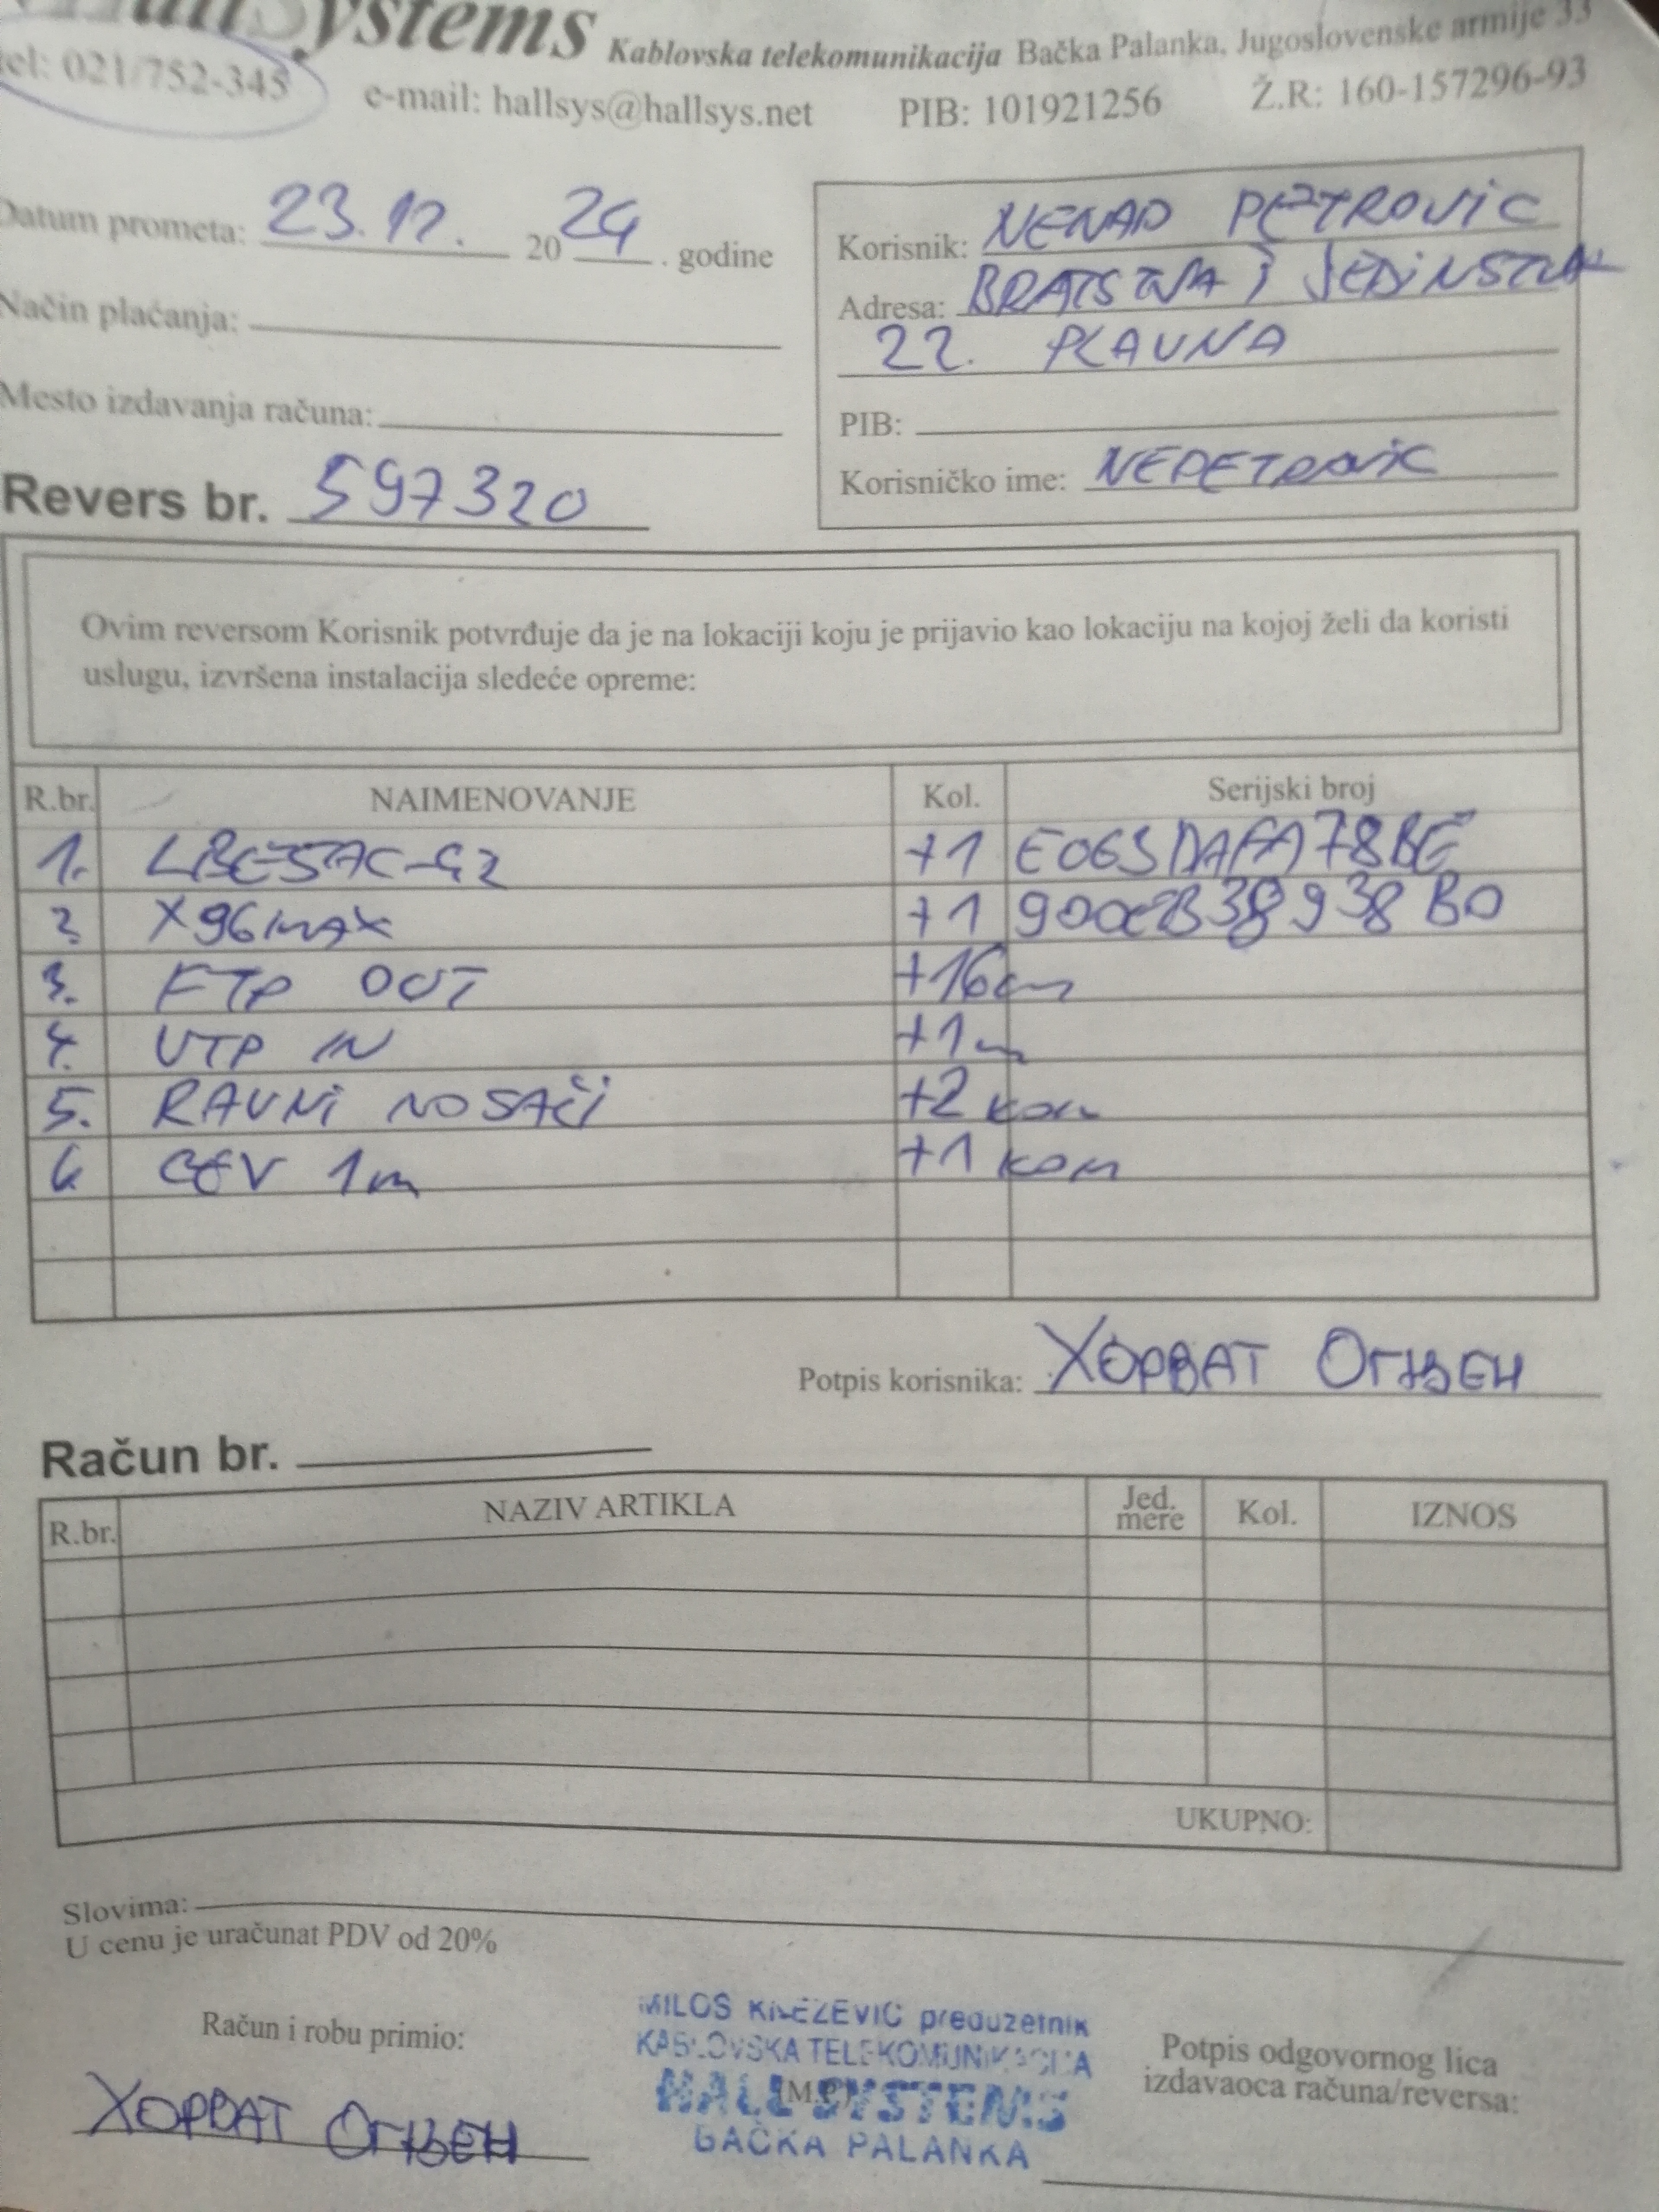 HallSystems Kablovska telekomunikacija Bačka Palanka, Jugoslovenske armije 33
tel: 021/752-345 e-mail: hallsys@hallsys.net PIB: 101921256 Ž.R: 160-157296-93
Datum prometa: 23.12. 2024. godine
Način plaćanja:
Mesto izdavanja računa:
Revers br. 597320
Korisnik: NENAD PETROVIC
Adresa: BRATSTVA I JEDINSTVA
22. PLAVNA
PIB:
Korisničko ime: NEPETROVIC
Ovim reversom Korisnik potvrđuje da je na lokaciji koju je prijavio kao lokaciju na kojoj želi da koristi
uslugu, izvršena instalacija sledeće opreme:
R.br. NAIMENOVANJE Kol. Serijski broj
1. LBE5AC-G2 +1
2. X96MAX +1
3. FTP OUT +16m
4. UTP IN +1m
5. RAVNI NOSAČI +2 kom
6. CEV 1m +1 kom
Potpis korisnika: ХОРВАТ ОГЊЕН
Račun br.
R.br. NAZIV ARTIKLA Jed. mere Kol. IZNOS
UKUPNO:
Slovima:
U cenu je uračunat PDV od 20%
Račun i robu primio:
ХОРВАТ ОГЊЕН
MILOS KNEZEVIC preduzetnik
KABLOVSKA TELEKOMUNIKACIJA
(M.P.)
HALL SYSTEMS
BAČKA PALANKA
Potpis odgovornog lica
izdavaoca računa/reversa: